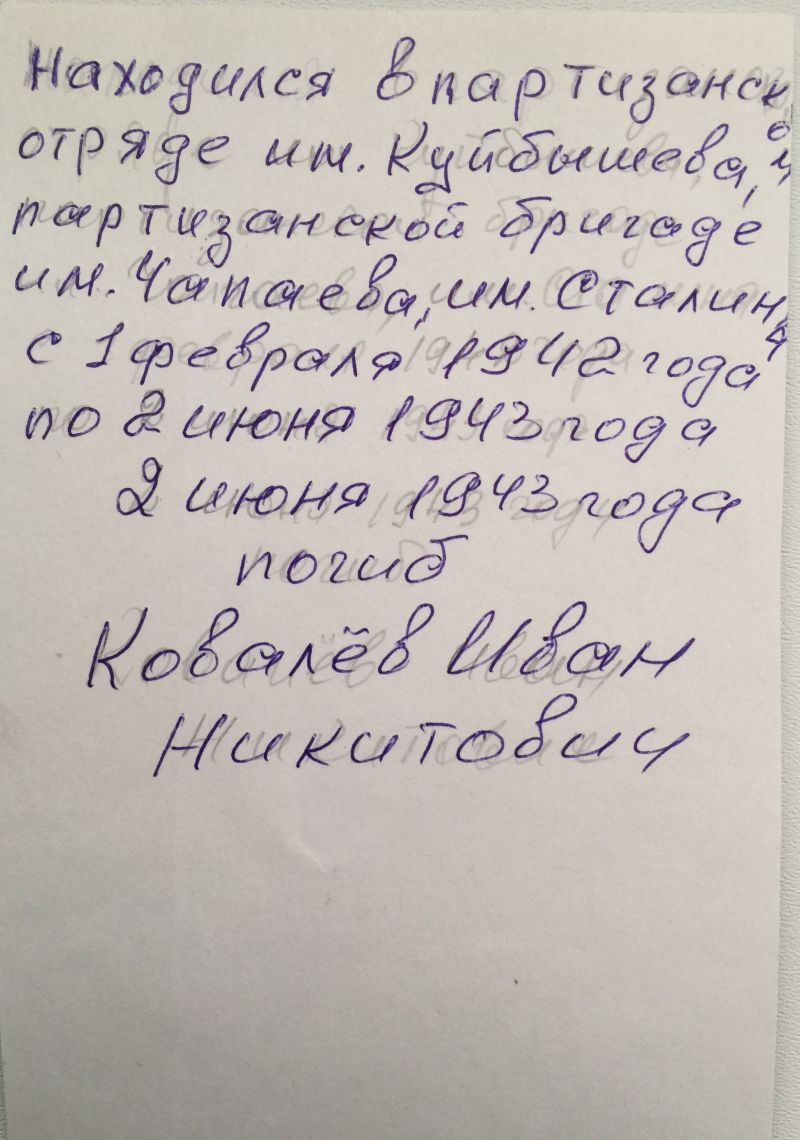 Находился в партизанском
отряде им. Куйбышева, и
партизанской бригаде
им. Чапаева, им. Сталина
с 1 февраля 1942 года
по 2 июня 1943 года
2 июня 1943 года
погиб
Ковалёв Иван
Никитович